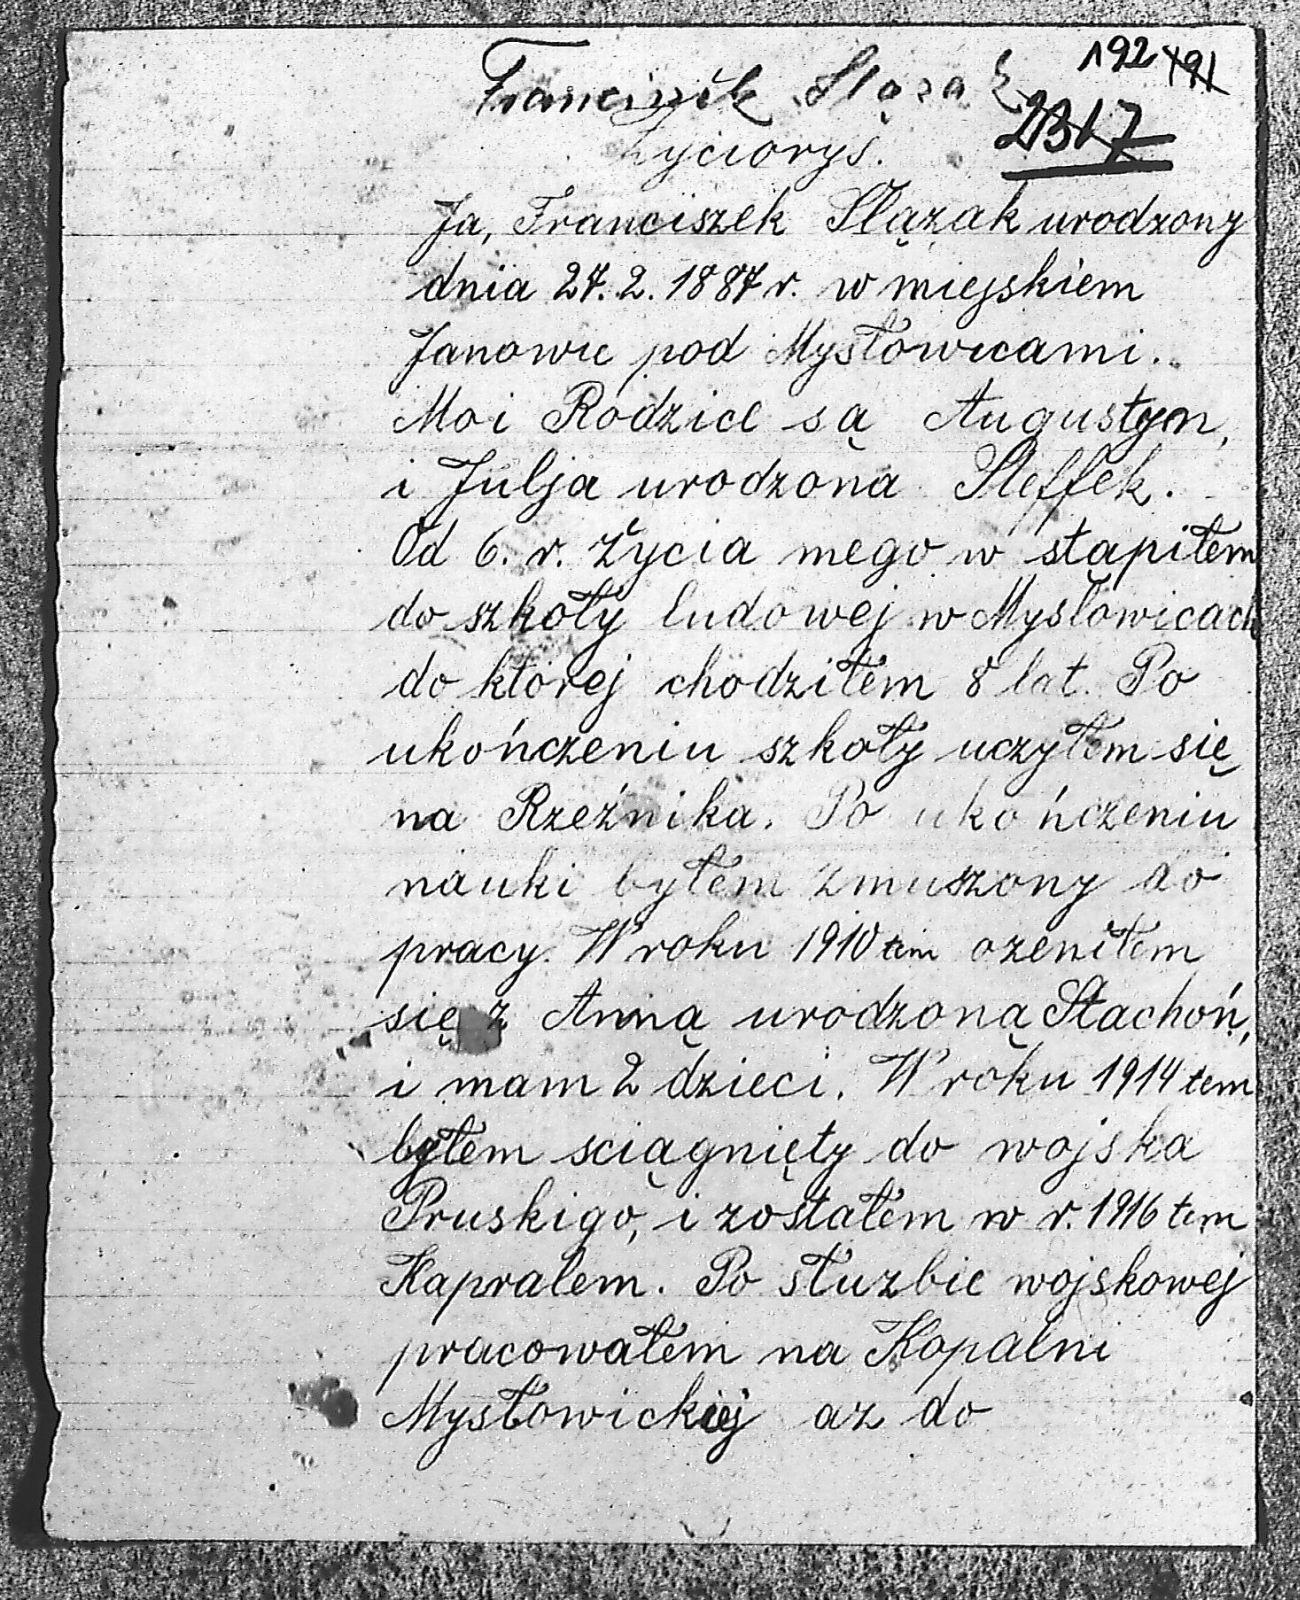 192 191
Franciszek Ślązak
2317
Życiorys.
Ja, Franciszek Ślązak urodzony
dnia 27. 2. 1887 r. w miejskiem
Janowie pod Mysłowicami.
Moi Rodzice są Augustyn,
i Julja urodzona Steffek.
Od 6. r. życia mego w stąpiłem
do szkoły ludowej w Mysłowicach
do ktorej chodziłem 8 lat. Po
ukończeniu szkoły uczyłem się
na Rzeźnika. Po ukończeniu
nauki byłem zmuszony do
pracy. W roku 1910 tim ozeniłem
się z Anną urodzoną Stachoń,
i mam 2 dzieci. W roku 1914 tem
byłem sciągnięty do wojska
Pruskigo, i zostałem w r. 1916 tem
Kapralem. Po słuzbie wojskowej
pracowałem na Kopalni
Mysłowickiej az do